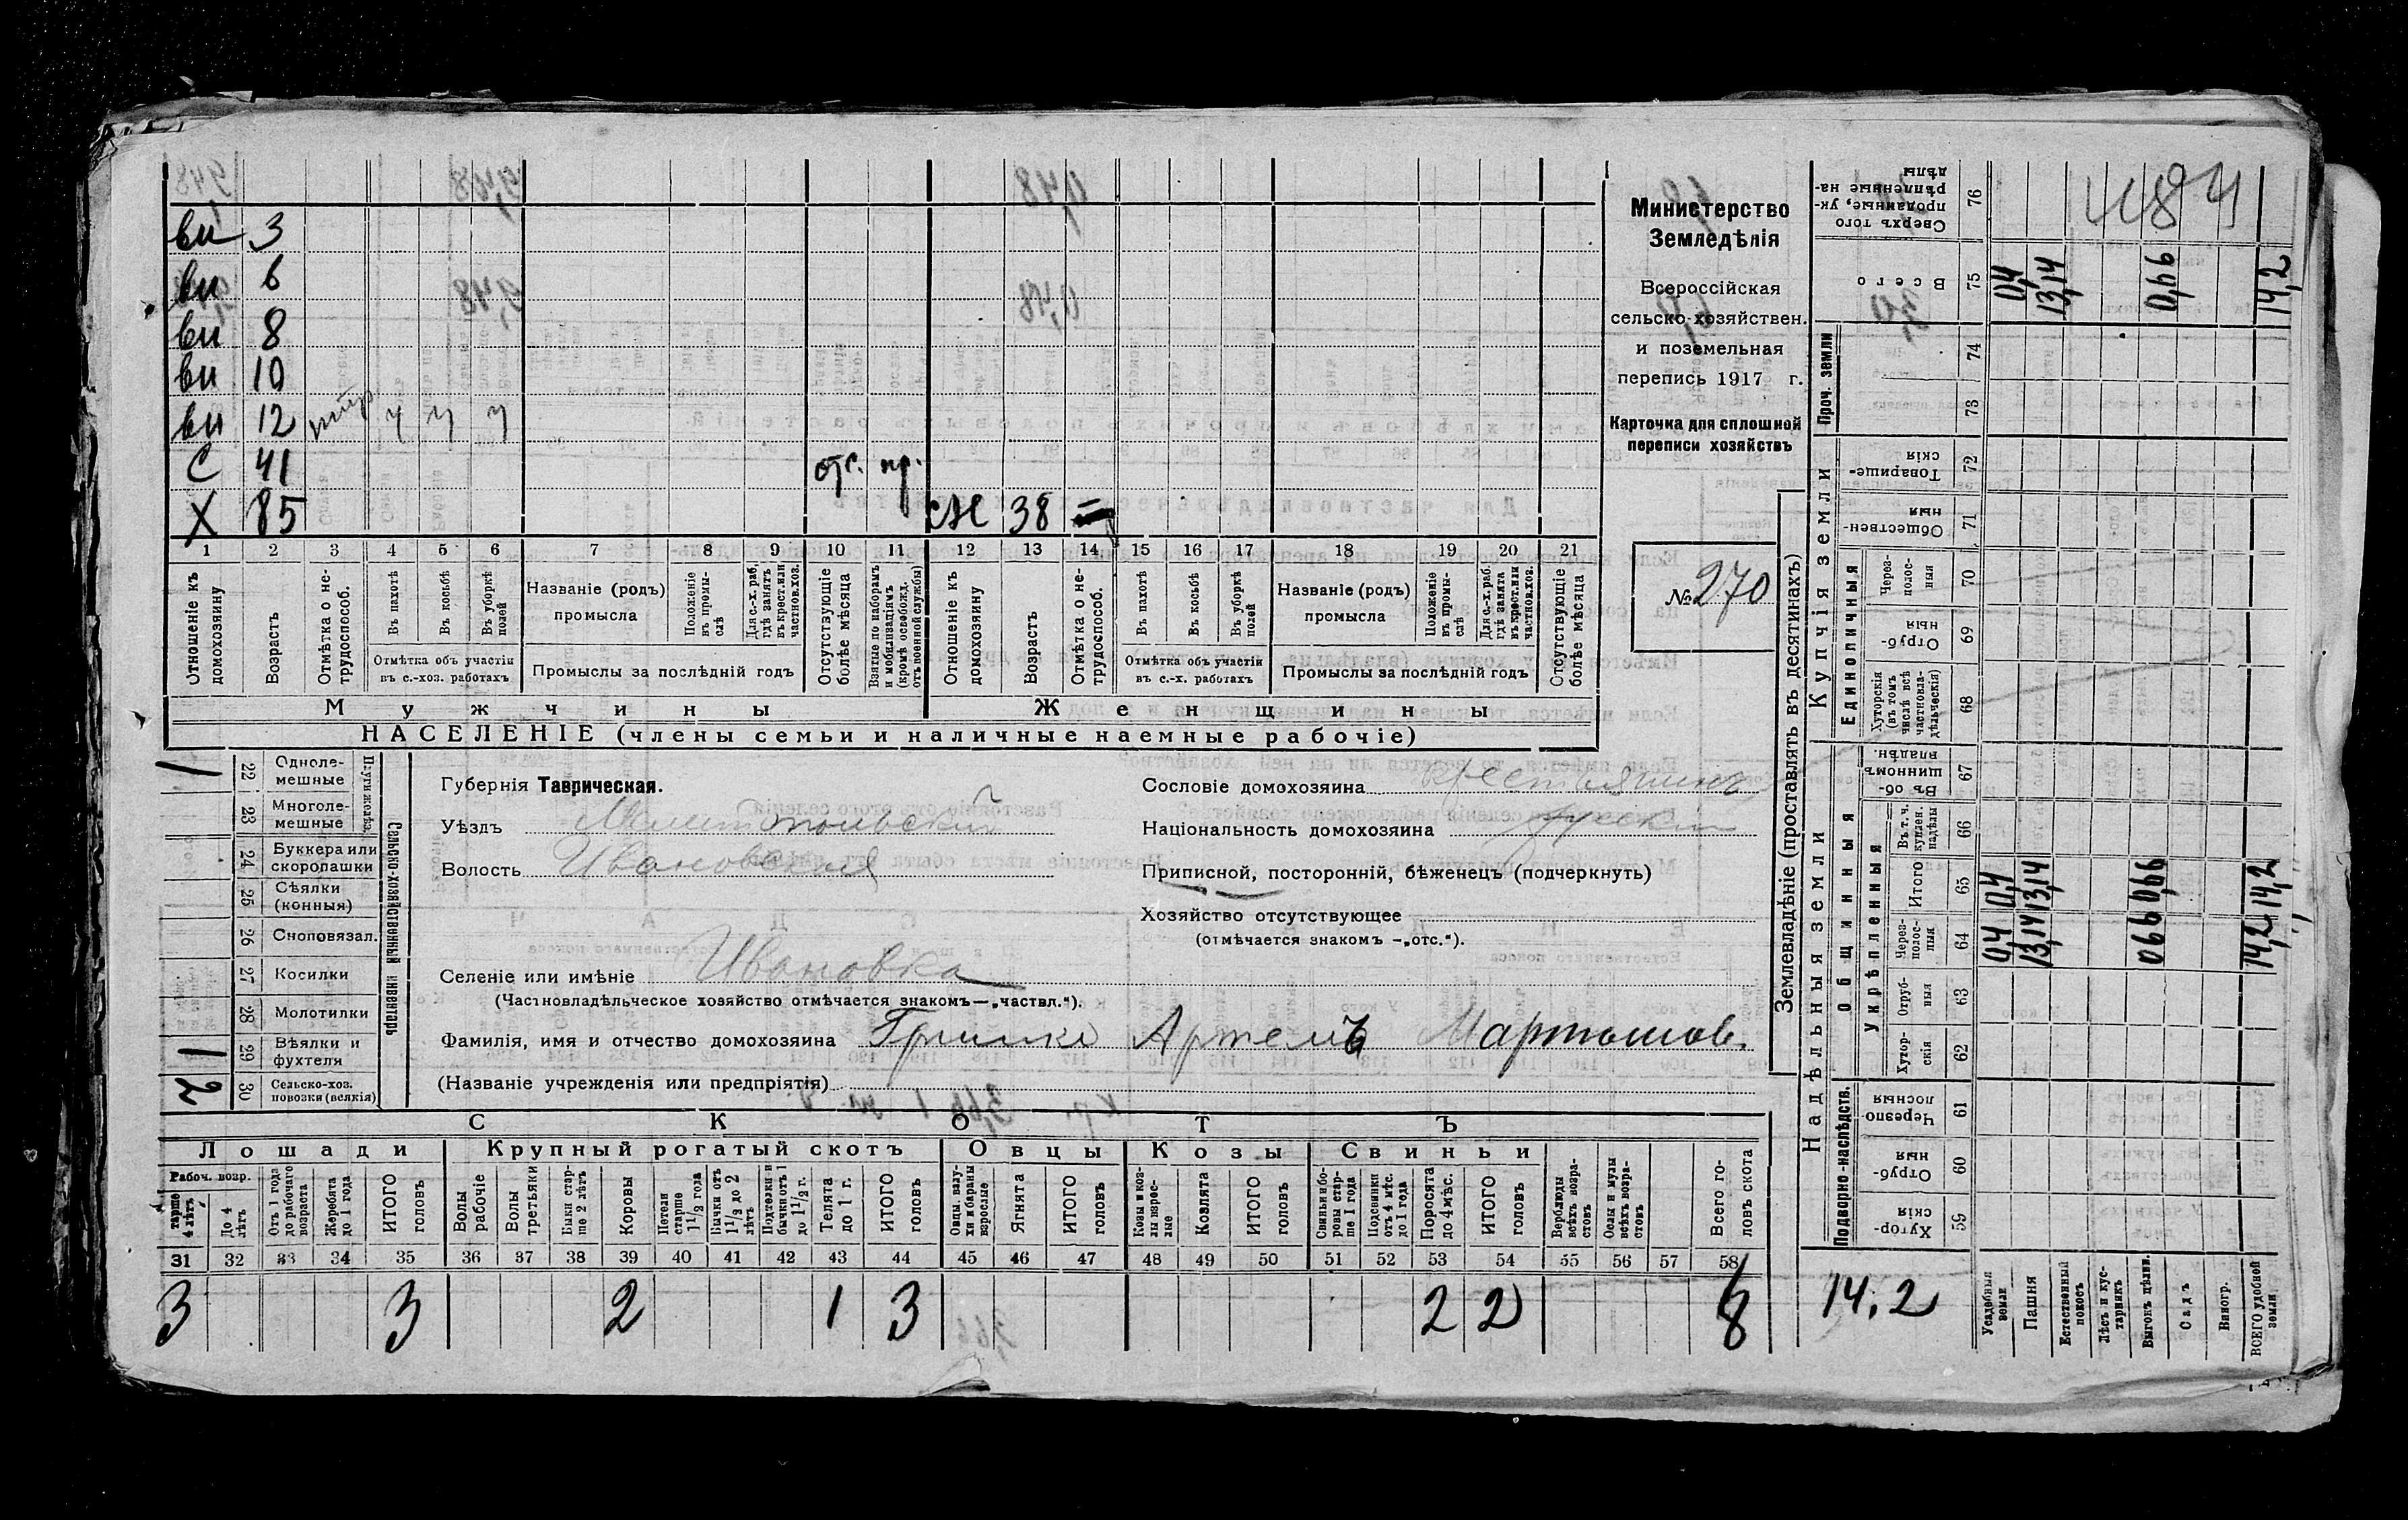 484
ви 3
ви 6
ви 8
ви 10
ви 12 у у у
С 41 отс. пр.
Х 85 сж 38
1 2 3 4 5 6 7 8 9 10 11 12 13 14 15 16 17 18 19 20 21
Отношеніе къ домохозяину
Возрастъ
Отмѣтка о не-трудоспособ.
Въ пахотѣ
Въ косьбѣ
Въ уборкѣ полей
Отмѣтка объ участіи въ с.-хоз. работахъ
Названіе (родъ) промысла
Положеніе въ промы-слѣ
Для с.-х. раб. гдѣ занятъ въ крест. или частнов. хоз.
Промыслы за послѣдній годъ
Отсутствующіе болѣе мѣсяца
Взятые по наборамъ и мобилизаціямъ (кромѣ освобожд. отъ военной службы)
Отношеніе къ домохозяину
Возрастъ
Отмѣтка о не-трудоспособ.
Въ пахотѣ
Въ косьбѣ
Въ уборкѣ полей
Отмѣтка объ участіи въ с.-х. работахъ
Названіе (родъ) промысла
Положеніе въ промы-слѣ
Для с.-х. раб. гдѣ занята въ крест. или частнов. хоз.
Промыслы за послѣдній годъ
Отсутствующіе болѣе мѣсяца
Мужчины Женщины
НАСЕЛЕНІЕ (члены семьи и наличные наемные рабочіе)
Министерство
Земледѣлія
Всероссійская
сельско-хозяйствен.
и поземельная
перепись 1917 г.
Карточка для сплошной
переписи хозяйствъ
№ 270
1 22 Однолемешные
23 Многолемешные
Плуги желѣз.
24 Буккера или скоропашки
25 Сѣялки (конныя)
26 Сноповязал.
27 Косилки
28 Молотилки
1 29 Вѣялки и фухтеля
2 30 Сельско-хоз. повозки (всякія)
Сельско-хозяйственный инвентарь
Губернія Таврическая.
Уѣздъ Мелитопольскій
Волость Ивановская
Селеніе или имѣніе Ивановка
(Частновладѣльческое хозяйство отмѣчается знакомъ—„частвл.“).
Фамилія, имя и отчество домохозяина Гришко Артемъ Мартынов.
(Названіе учрежденія или предпріятія)
Сословіе домохозяина крестьянинъ
Національность домохозяина русскій
Приписной, посторонній, бѣженецъ (подчеркнуть)
Хозяйство отсутствующее
(отмѣчается знакомъ —„отс.“).
СКОТЪ
Лошади Крупный рогатый скотъ Овцы Козы Свиньи
Рабоч. возр.
старше 4 лѣтъ
До 4 лѣтъ
Отъ 1 года до рабочаго возраста
Жеребята до 1 года
ИТОГО головъ
Волы рабочіе
Волы третьяки
Быки старше 2 лѣтъ
Коровы
Нетели старше 1 1/2 года
Бычки отъ 1 1/2 до 2 лѣтъ
Подтелки и бычки отъ 1 до 1 1/2 г.
Телята до 1 г.
ИТОГО головъ
Овцы, валухи и бараны взрослые
Ягнята
ИТОГО головъ
Козы и козлы взрослые
Козлята
ИТОГО головъ
Свиньи и боровы старше 1 года
Подсвинки отъ 4 мѣс. до 1 года
Поросята до 4 мѣс.
ИТОГО головъ
Верблюды всѣхъ возрастовъ
Ослы и мулы всѣхъ возрастовъ
Всего головъ скота
31 32 33 34 35 36 37 38 39 40 41 42 43 44 45 46 47 48 49 50 51 52 53 54 55 56 57 58
3 3 2 1 3 2 2 8
Землевладѣніе (проставлять въ десятинахъ)
Надѣльныя земли
Купчія земли
Проч. земли
Подворно-наслѣдств.
Общинныя
Укрѣпленныя
Единоличныя
Хуторскія 59
Отрубныя 60
Черезполосныя 61
Хуторскія 62
Отрубныя 63
Черезполосныя 64
Итого 65
Въ т. ч. куплен. надѣлы 66
Въ общинномъ владѣн. 67
Хуторскія (въ томъ числѣ всѣ частновладѣльческія) 68
Отрубныя 69
Черезполосныя 70
Общественныя 71
Товарищескія 72
73
74
Всего 75
Сверхъ того проданные, укрѣпленные надѣлы 76
14.2
Усадебныя земли 0,4 0,4 0,4
Пашня 13,14 13,14 13,14
Естественный покосъ
Лѣсъ и кустарникъ
Выгонъ цѣлин. 0,66 0,66 0,66
Садъ
Виногр.
ВСЕГО удобной земли 14,2 14,2 14,2